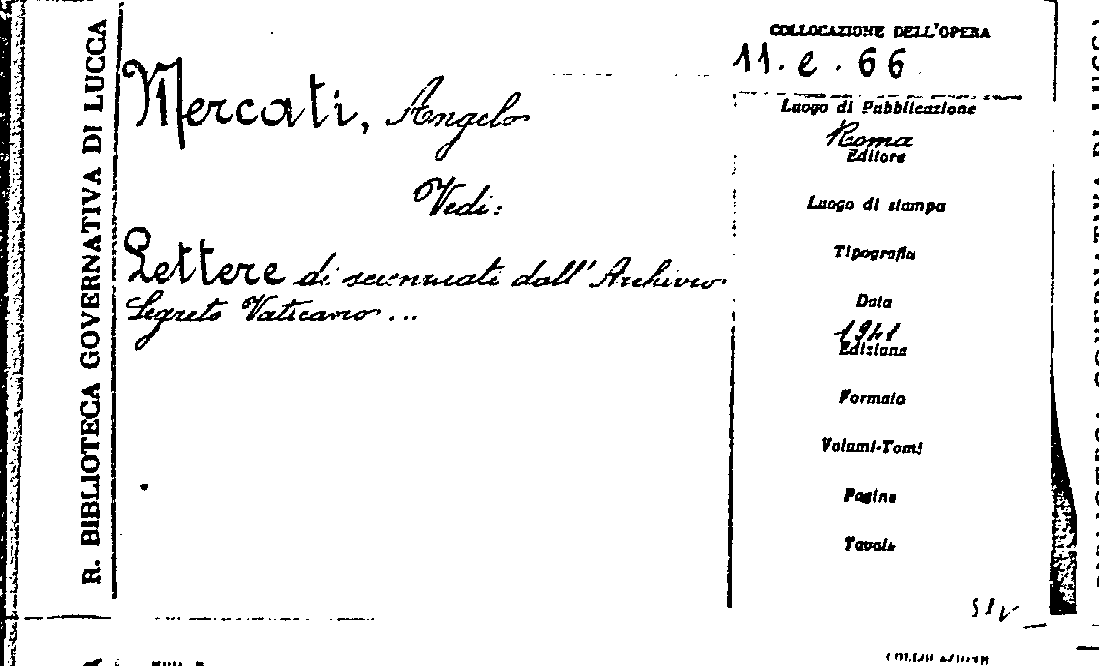 R. BIBLIOTECA GOVERNATIVA DI LUCCA
Mercati, Angelo
Vedi:
Lettere di scienziati dall'Archivio
Segreto Vaticano ...
COLLOCAZIONE DELL'OPERA
11. e. 66
Luogo di Pubblicazione
Roma
Editore
Luogo di stampa
Tipografia
Data
1941
Edizione
Formato
Volumi-Tomi
Pagine
Tavole